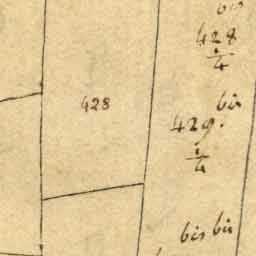 bis
428
1/4
428
bis
429.
1/4
bis bis